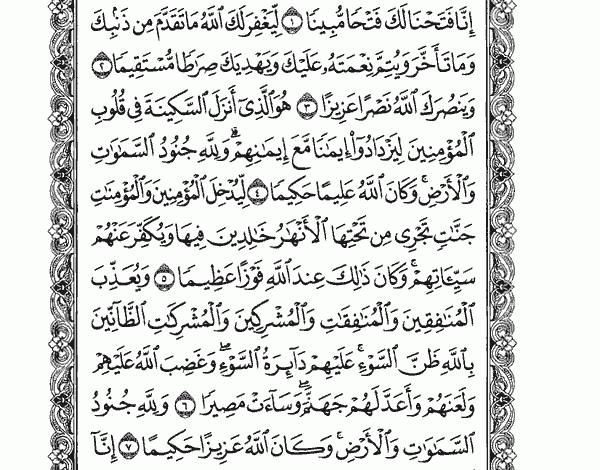 إِنَّا فَتَحْنَا لَكَ فَتْحًا مُّبِينًا ١ لِّيَغْفِرَ لَكَ ٱللَّهُ مَا تَقَدَّمَ مِن ذَنۢبِكَ
وَمَا تَأَخَّرَ وَيُتِمَّ نِعْمَتَهُۥ عَلَيْكَ وَيَهْدِيَكَ صِرَٰطًا مُّسْتَقِيمًا ٢
وَيَنصُرَكَ ٱللَّهُ نَصْرًا عَزِيزًا ٣ هُوَ ٱلَّذِىٓ أَنزَلَ ٱلسَّكِينَةَ فِى قُلُوبِ
ٱلْمُؤْمِنِينَ لِيَزْدَادُوٓا۟ إِيمَٰنًا مَّعَ إِيمَٰنِهِمْ ۗ وَلِلَّهِ جُنُودُ ٱلسَّمَٰوَٰتِ
وَٱلْأَرْضِ ۚ وَكَانَ ٱللَّهُ عَلِيمًا حَكِيمًا ٤ لِّيُدْخِلَ ٱلْمُؤْمِنِينَ وَٱلْمُؤْمِنَٰتِ
جَنَّٰتٍ تَجْرِى مِن تَحْتِهَا ٱلْأَنْهَٰرُ خَٰلِدِينَ فِيهَا وَيُكَفِّرَ عَنْهُمْ
سَيِّـَٔاتِهِمْ ۚ وَكَانَ ذَٰلِكَ عِندَ ٱللَّهِ فَوْزًا عَظِيمًا ٥ وَيُعَذِّبَ
ٱلْمُنَٰفِقِينَ وَٱلْمُنَٰفِقَٰتِ وَٱلْمُشْرِكِينَ وَٱلْمُشْرِكَٰتِ ٱلظَّآنِّينَ
بِٱللَّهِ ظَنَّ ٱلسَّوْءِ ۚ عَلَيْهِمْ دَآئِرَةُ ٱلسَّوْءِ ۖ وَغَضِبَ ٱللَّهُ عَلَيْهِمْ
وَلَعَنَهُمْ وَأَعَدَّ لَهُمْ جَهَنَّمَ ۖ وَسَآءَتْ مَصِيرًا ٦ وَلِلَّهِ جُنُودُ
ٱلسَّمَٰوَٰتِ وَٱلْأَرْضِ ۚ وَكَانَ ٱللَّهُ عَزِيزًا حَكِيمًا ٧ إِنَّآ